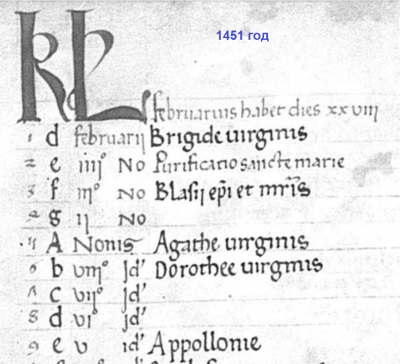 1451 год
KL februarius habet dies xxviii
1 d februarij Brigide uirginis
2 e iiij° No Purificatio sancte marie
3 f iij° No Blasij ep̄i et mr̄is
g ij No
A Nonis Agathe uirginis
6 b viij° Jd' Dorothee uirginis
c vij° Jd'
8 d vj° Jd'
9 e v id' Appollonie